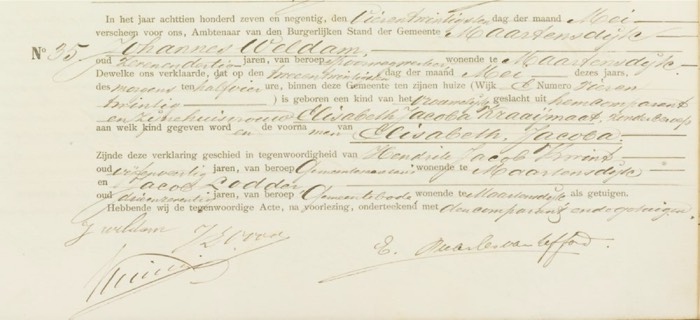 In het jaar achttien honderd zeven en negentig, den Vierentwintigsten dag der maand Mei
verscheen voor ons, Ambtenaar van den Burgerlijken Stand der Gemeente Maartensdijk
No 35 Johannes Weldam,
oud zevenendertig jaren, van beroep Spoorwegwerker, wonende te Maartensdijk
Dewelke ons verklaarde, dat op den tweeentwintigsten dag der maand Mei dezes jaars,
des morgens te half vier ure, binnen deze Gemeente ten zijnen huize (Wijk E Numero vieren
twintig) is geboren een kind van het vrouwelijk geslacht uit hem comparant
en zijne huisvrouw Elisabeth Jacoba Kraaijmaat, zonder beroep
aan welk kind gegeven word en de voornamen Elisabeth, Jacoba.
Zijnde deze verklaring geschied in tegenwoordigheid van Hendrik Jacob Kwint
oud jaren, van beroep wonende te Maartensdijk
en Jacob Lodder
oud jaren, van beroep Gemeentebode, wonende te Maartensdijk als getuigen.
Hebbende wij de tegenwoordige Acte, na voorlezing, onderteekend met den comparant en de getuigen.
J Weldam
E.